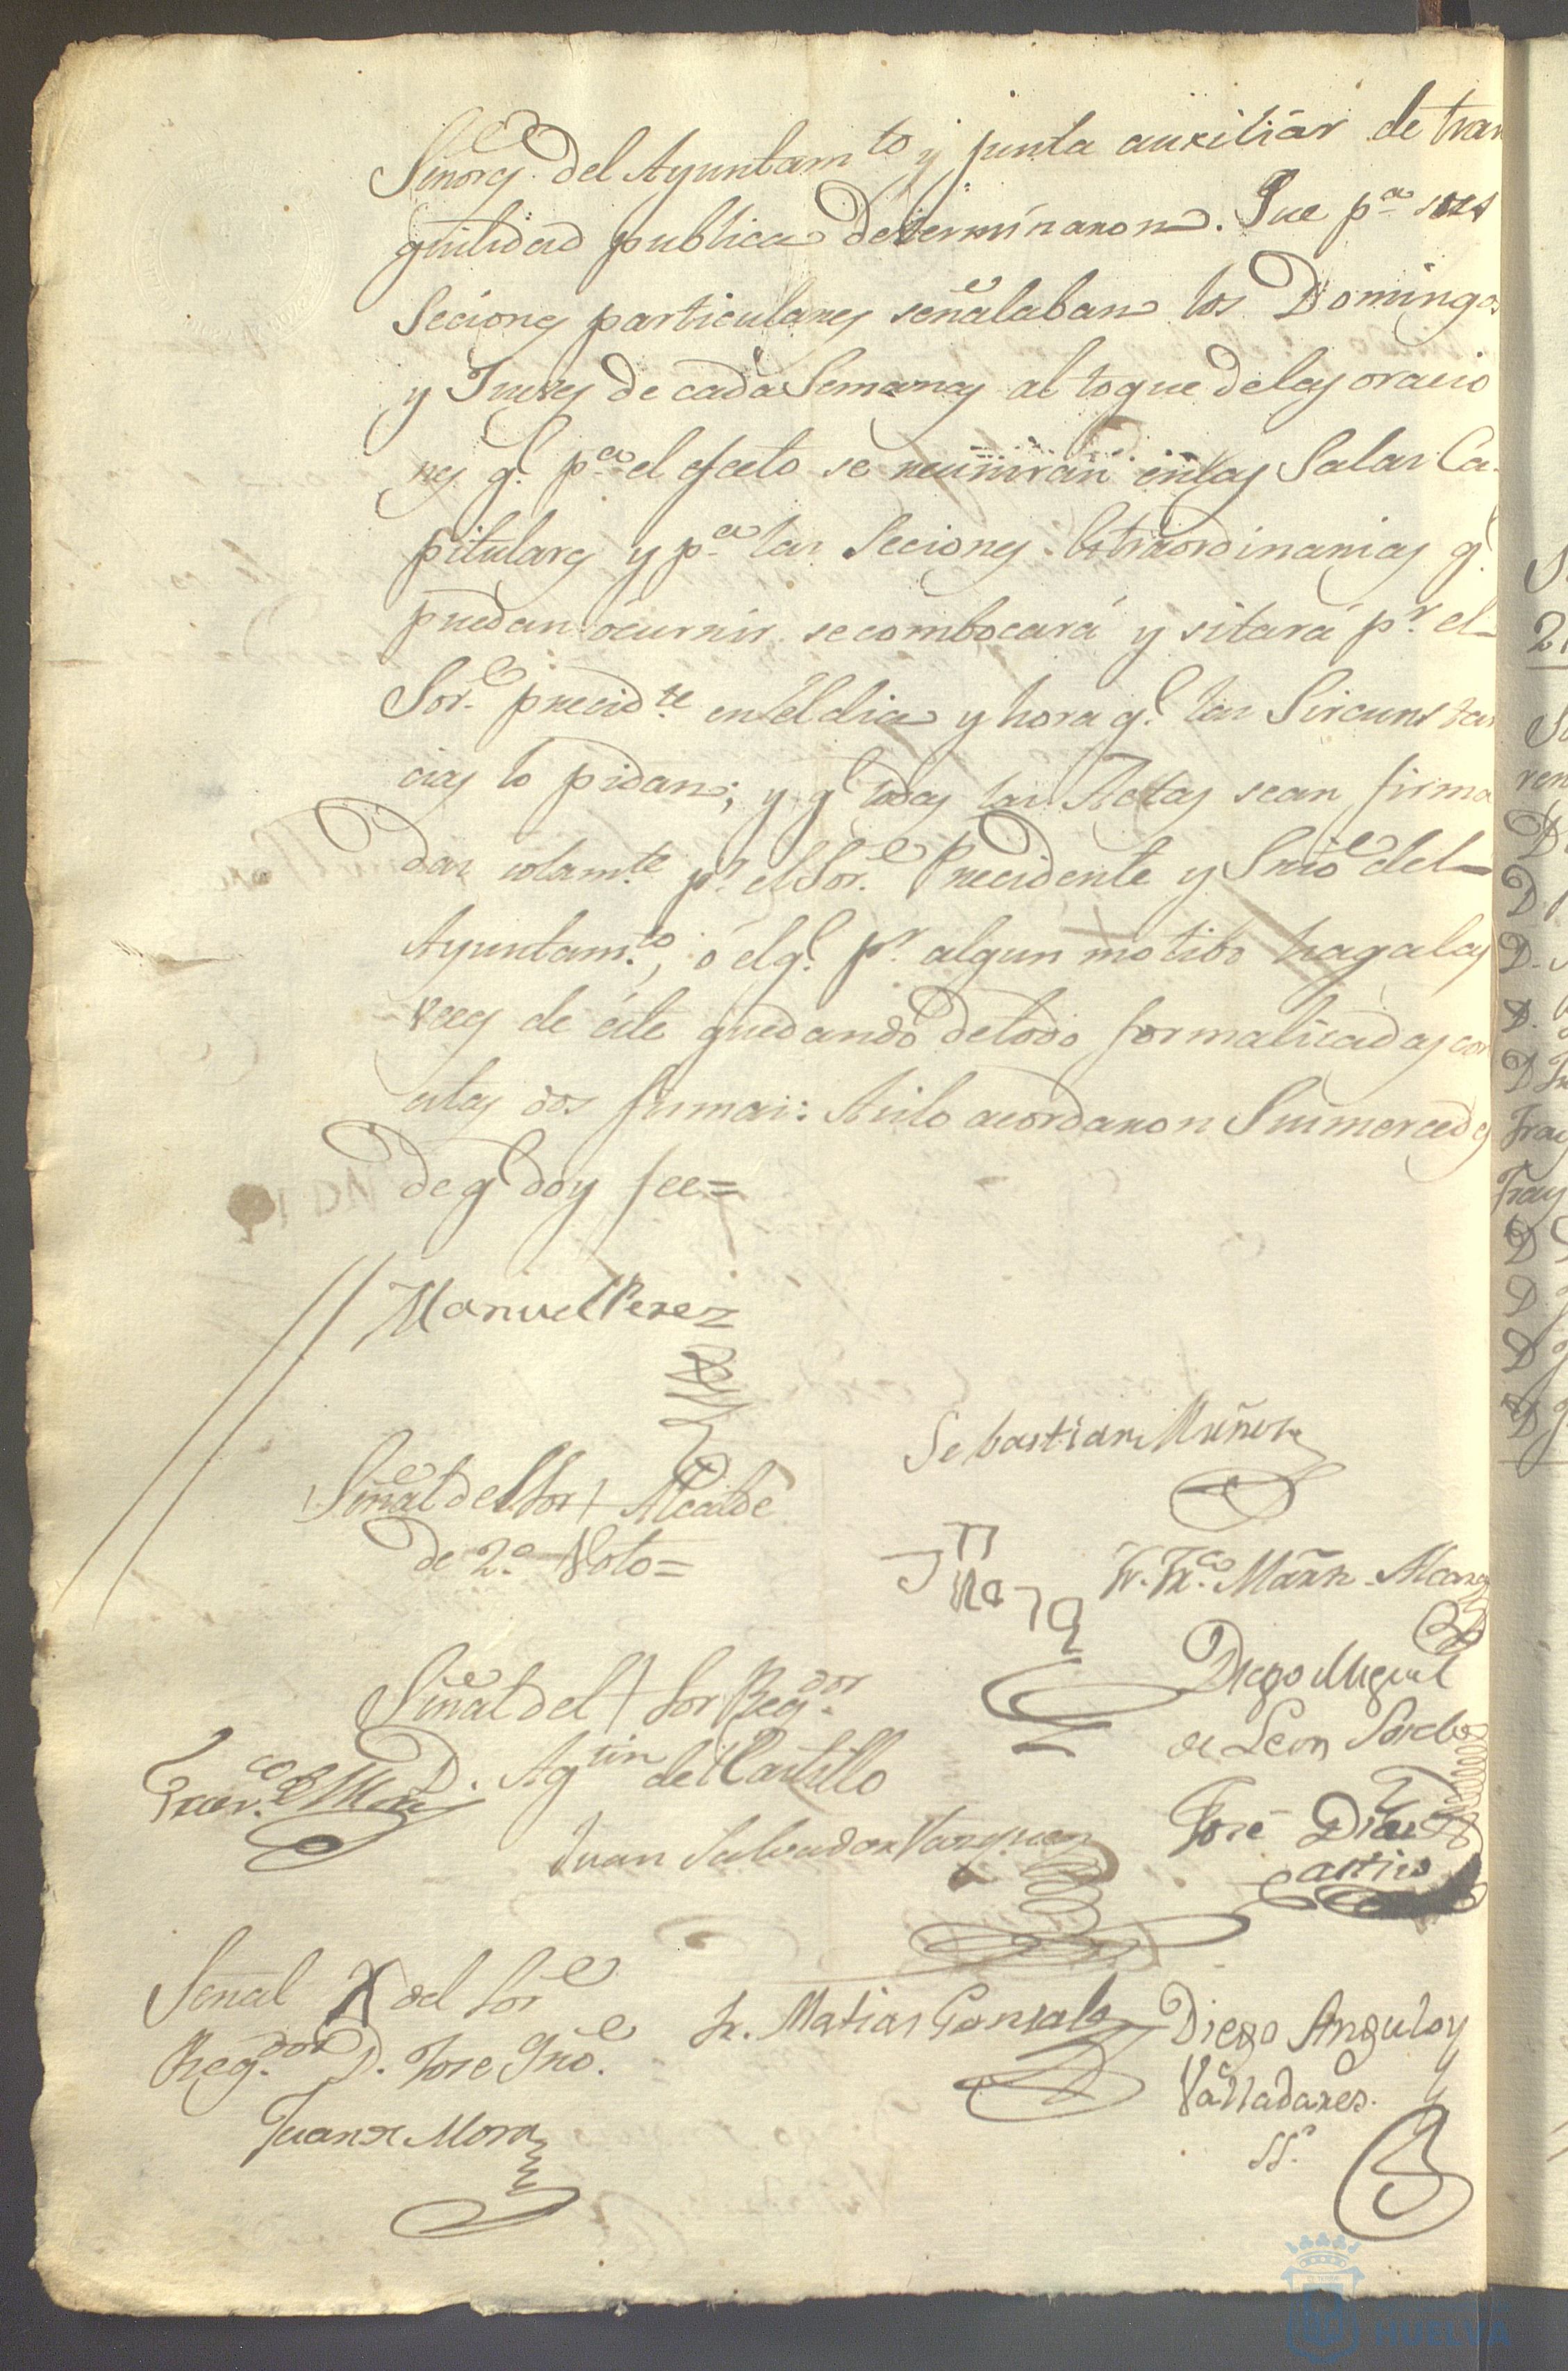 Señores del Ayuntam.to y junta auxiliar de tran
quilidad publica determinaron. Que p.a sus
Seciones particulares señalaban los Domingos
y Jueves de cada Semana al toque de las oracio
nes q.e p.a el efecto se reuniran en las Salas Ca-
pitulares y p.a las Seciones Extraordinarias q.e
puedan ocurrir se combocará y sitará p.r el
Sor. precid.te en el dia y hora q.e las Sircunstan
cias lo pidan; y q.e todas las Actas sean firma
das solam.te p.r el Sor. Precidente y Srio del
Ayuntam.to, ó el q.e p.r algun motibo haga las
veces de éste quedando de todo formalizadas con
estas dos firmas: Asi lo acordaron Sus mercedes
de q.e doy fee=
Manuel Perez
Sebastian Muñoz
Señal del Sor + Alcalde
de 2.o Voto=
Fr. Fr.co Marn.
Señal del + Sor Reg.dor
D. Ag.tin del Castillo
Diego Miguel
de Leon Sorel
Juan Salvador Vazquez
José Diaz
Señal X del Sor
Reg.dor D. Jose Gno.
Fr. Matias Gonzalez
Diego Angulo y
Valladares.
Juan de Mora
SS.o
HUELVA
D
D.
D.
D.
D
Fray
Fray
D
D
D
D